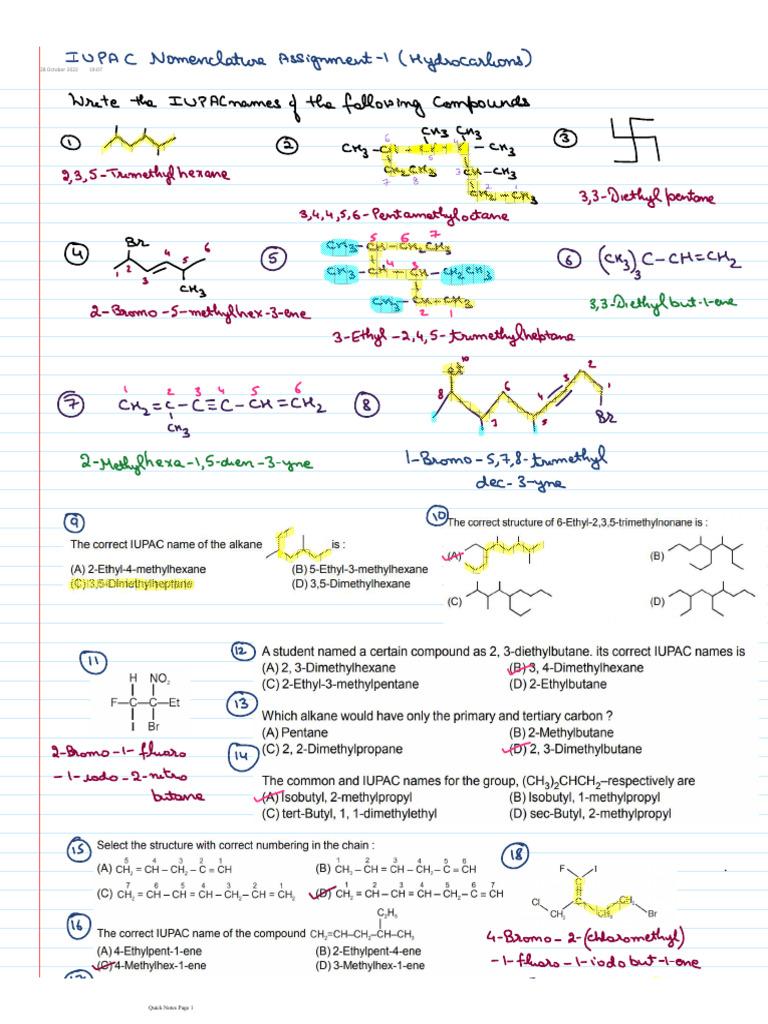 IUPAC Nomenclature Assignment-1 (Hydrocarbons)
28 October 2022 19:07
Write the IUPAC names of the following Compounds
① ② CH3 – CH – CH – C – CH3 ③
CH3 CH3
6 5 4
CH2CH3 3 CH – CH3
7 8
2 1
CH2 – CH3
2,3,5-Trimethylhexane
3,4,4,5,6-Pentamethyloctane
3,3-Diethylpentane
④ Br 1 2 3 4 5 6 CH3
⑤ CH3– CH – CH2CH3
5 6 7
CH3– CH – CH – CH2CH3
4 3
CH3– CH – CH3
2 1
⑥ (CH3)3C–CH=CH2
2-Bromo-5-methylhex-3-ene
3,3-Diethylbut-1-ene
3-Ethyl-2,4,5-trimethylheptane
1 2 3 4 5 6
⑦ CH2=C–C≡C–CH=CH2
CH3
⑧ Et 10 8 7 6 5 4 3 2 1 Br
2-Methylhexa-1,5-dien-3-yne
1-Bromo-5,7,8-trimethyl
dec-3-yne
⑨
The correct IUPAC name of the alkane is :
(A) 2-Ethyl-4-methylhexane (B) 5-Ethyl-3-methylhexane
(C) 3,5-Dimethylheptane (D) 3,5-Dimethylhexane
⑩ The correct structure of 6-Ethyl-2,3,5-trimethylnonane is :
(A) (B)
(C) (D)
⑪
H NO2
F–C–C–Et
I Br
2-Bromo-1-fluoro
-1-iodo-2-nitro
butane
⑫ A student named a certain compound as 2, 3-diethylbutane. its correct IUPAC names is
(A) 2, 3-Dimethylhexane (B) 3, 4-Dimethylhexane
(C) 2-Ethyl-3-methylpentane (D) 2-Ethylbutane
⑬ Which alkane would have only the primary and tertiary carbon ?
(A) Pentane (B) 2-Methylbutane
(C) 2, 2-Dimethylpropane (D) 2, 3-Dimethylbutane
⑭ The common and IUPAC names for the group, (CH3)2CHCH2–respectively are
(A) Isobutyl, 2-methylpropyl (B) Isobutyl, 1-methylpropyl
(C) tert-Butyl, 1, 1-dimethylethyl (D) sec-Butyl, 2-methylpropyl
⑮ Select the structure with correct numbering in the chain :
5 4 3 2 1 1 2 3 4 5 6
(A) CH2 = CH – CH2 – C ≡ CH (B) CH3 – CH = CH – CH2 – C ≡ CH
7 6 5 4 3 2 1 1 2 3 4 5 6 7
(C) CH2 = CH – CH = CH – CH2 – CH = CH2 (D) CH2 = CH – CH = CH – CH2 – C ≡ CH
⑯
C2H5
The correct IUPAC name of the compound CH2=CH–CH2–CH–CH3
(A) 4-Ethylpent-1-ene (B) 2-Ethylpent-4-ene
(C) 4-Methylhex-1-ene (D) 3-Methylhex-1-ene
⑱
F I
C
Cl C CH2
CH2 CH2 Br
4-Bromo-2-(chloromethyl)
-1-fluoro-1-iodobut-1-ene
Quick Notes Page 1